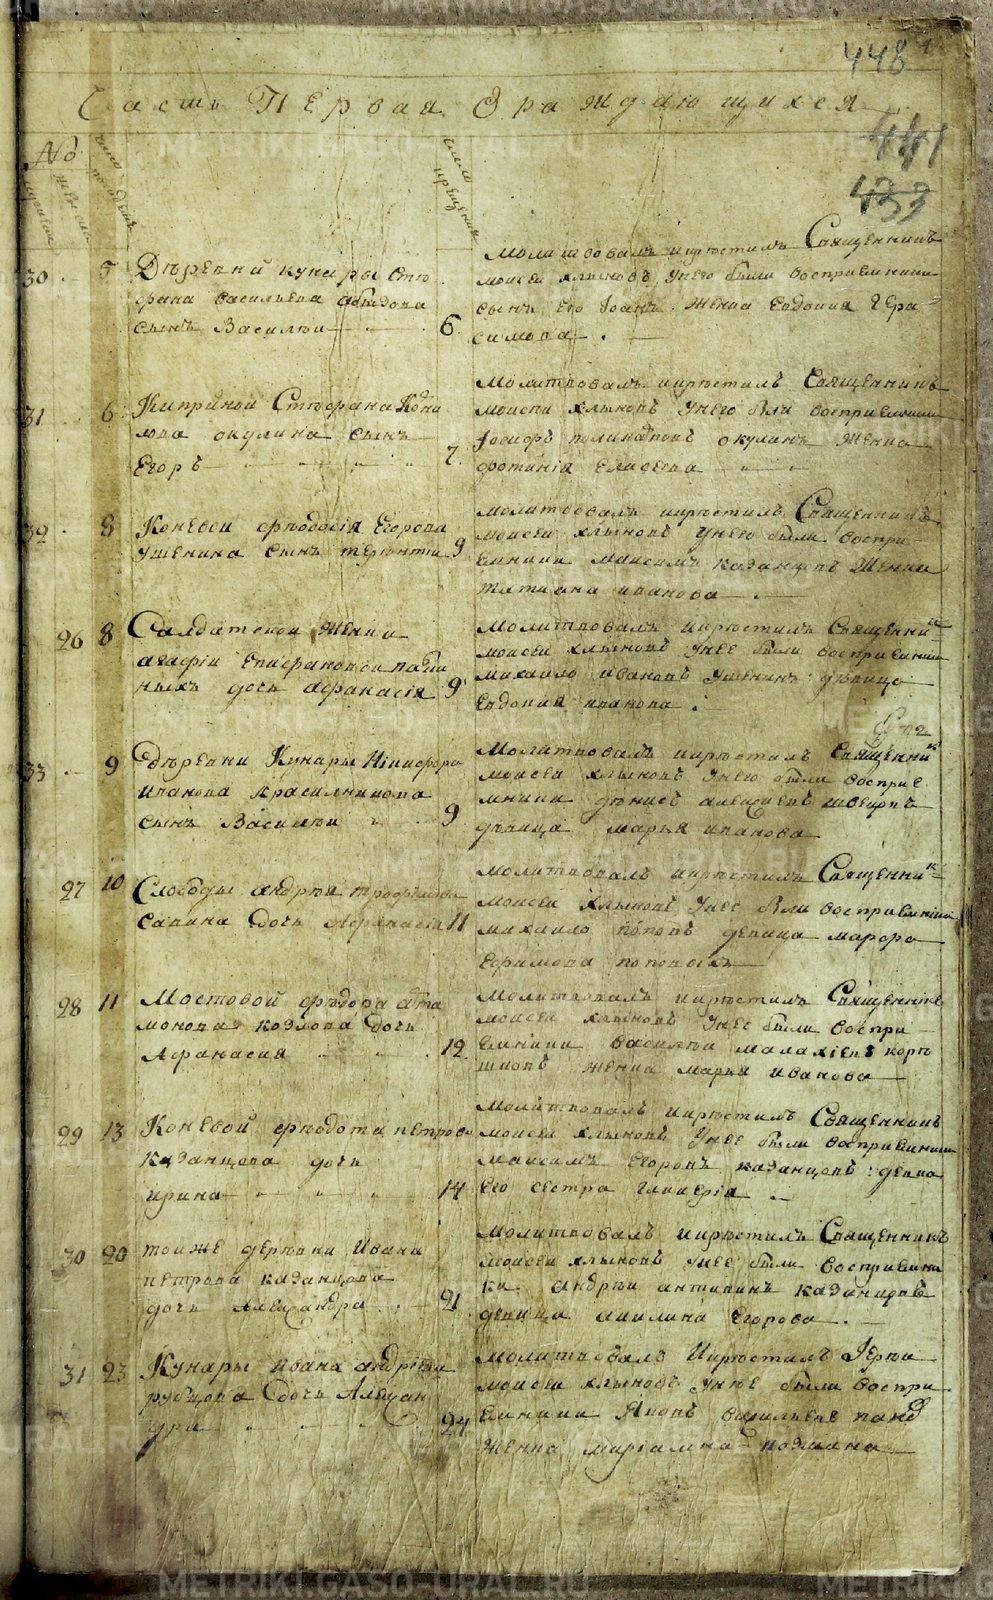 448
Часть Первая О раждающихся
441
433
№
30
5
Деревни кунары Сте
фана васильева
сынъ Василеи
6
молитвовалъ икрестилъ Священникъ
моисеи хлыновъ унего были восприемники
сынъ его Iоанъ женка Евдокия Гера
симова
31
6
Киприной Стефана
окулина сынъ
Егоръ
7
молитвовалъ икрестилъ Священникъ
моисеи хлыновъ унего были восприемники
Iосифъ окулинъ женка
фотинiя Елисеева
32
8
Коневои федосiя Егорова
ушенина сынъ терентии
9
молитвовалъ икрестилъ Священникъ
моисеи хлыновъ унего были воспри
емники максимъ казанцовъ женка
татиана иванова
26
8
Салдатскои женки
агафiи Епифановои
дочь афанасiя
9
молитвовалъ икрестилъ Священни
моисеи хлыновъ унее были восприемники
михаило ивановъ ушенинъ девица
Евдокия иванова
33
9
деревни Кунары Никифора
иванова красилникова
сынъ Василеи
9
молитвовалъ икрестилъ Священник
моисеи хлыновъ унего были восприе
мники денисъ алексеевъ
девица марья иванова
27
10
Слободы андреи трофимова
сапина дочь Афанасия
11
молитвовалъ икрестилъ Священник
моисеи хлыновъ унее были восприемники
михаило поповъ девица марфа
Ефимова поповыхъ
28
11
Мостовой федора арта
монова козлова дочь
Афанасия
12
молитвовалъ икрестилъ Священникъ
моисеи хлыновъ унее были воспри
емники василеи малахiевъ коре
шковъ женка марья иванова
29
13
Коневой федота петрова
казанцова дочь
ирина
14
молитвовалъ икрестилъ Священникъ
моисеи хлыновъ унее были восприемники
максимъ Егоровъ казанцовъ девка
его сестра гликерiя
30
20
тоиже деревни ивана
петрова казанцова
дочь Александра
21
молитвовалъ икрестилъ Священникъ
моисеи хлыновъ унее были восприемни
ки андреи антипинъ казанцовъ
девица акилина Егорова
31
23
Кунары ивана андреева
рубцова дочь Алексан
дра
24
молитвовалъ икрестилъ Iереи
моисеи хлыновъ унее были воспри
емники Яковъ васильевъ
женка марiамна